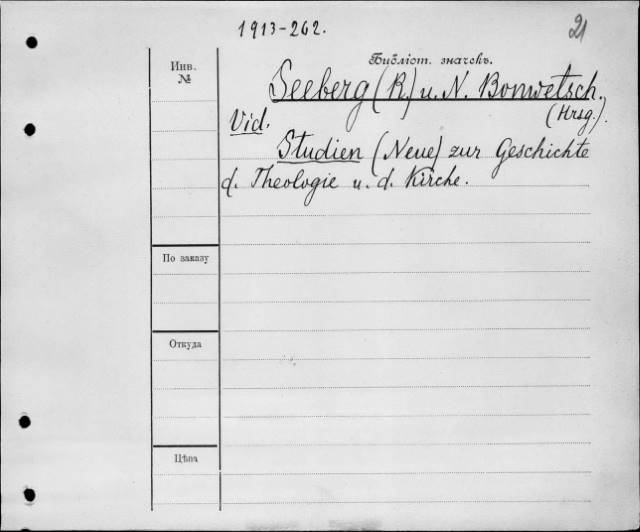 1913-262.
21
Библіот. значекъ.
Инв.
№
Seeberg (R.) u. N. Bonwetsch.
(Hrsg.).
Vid.
Studien (Neue) zur Geschichte
d. Theologie u. d. Kirche.
По заказу
Откуда
Цѣна